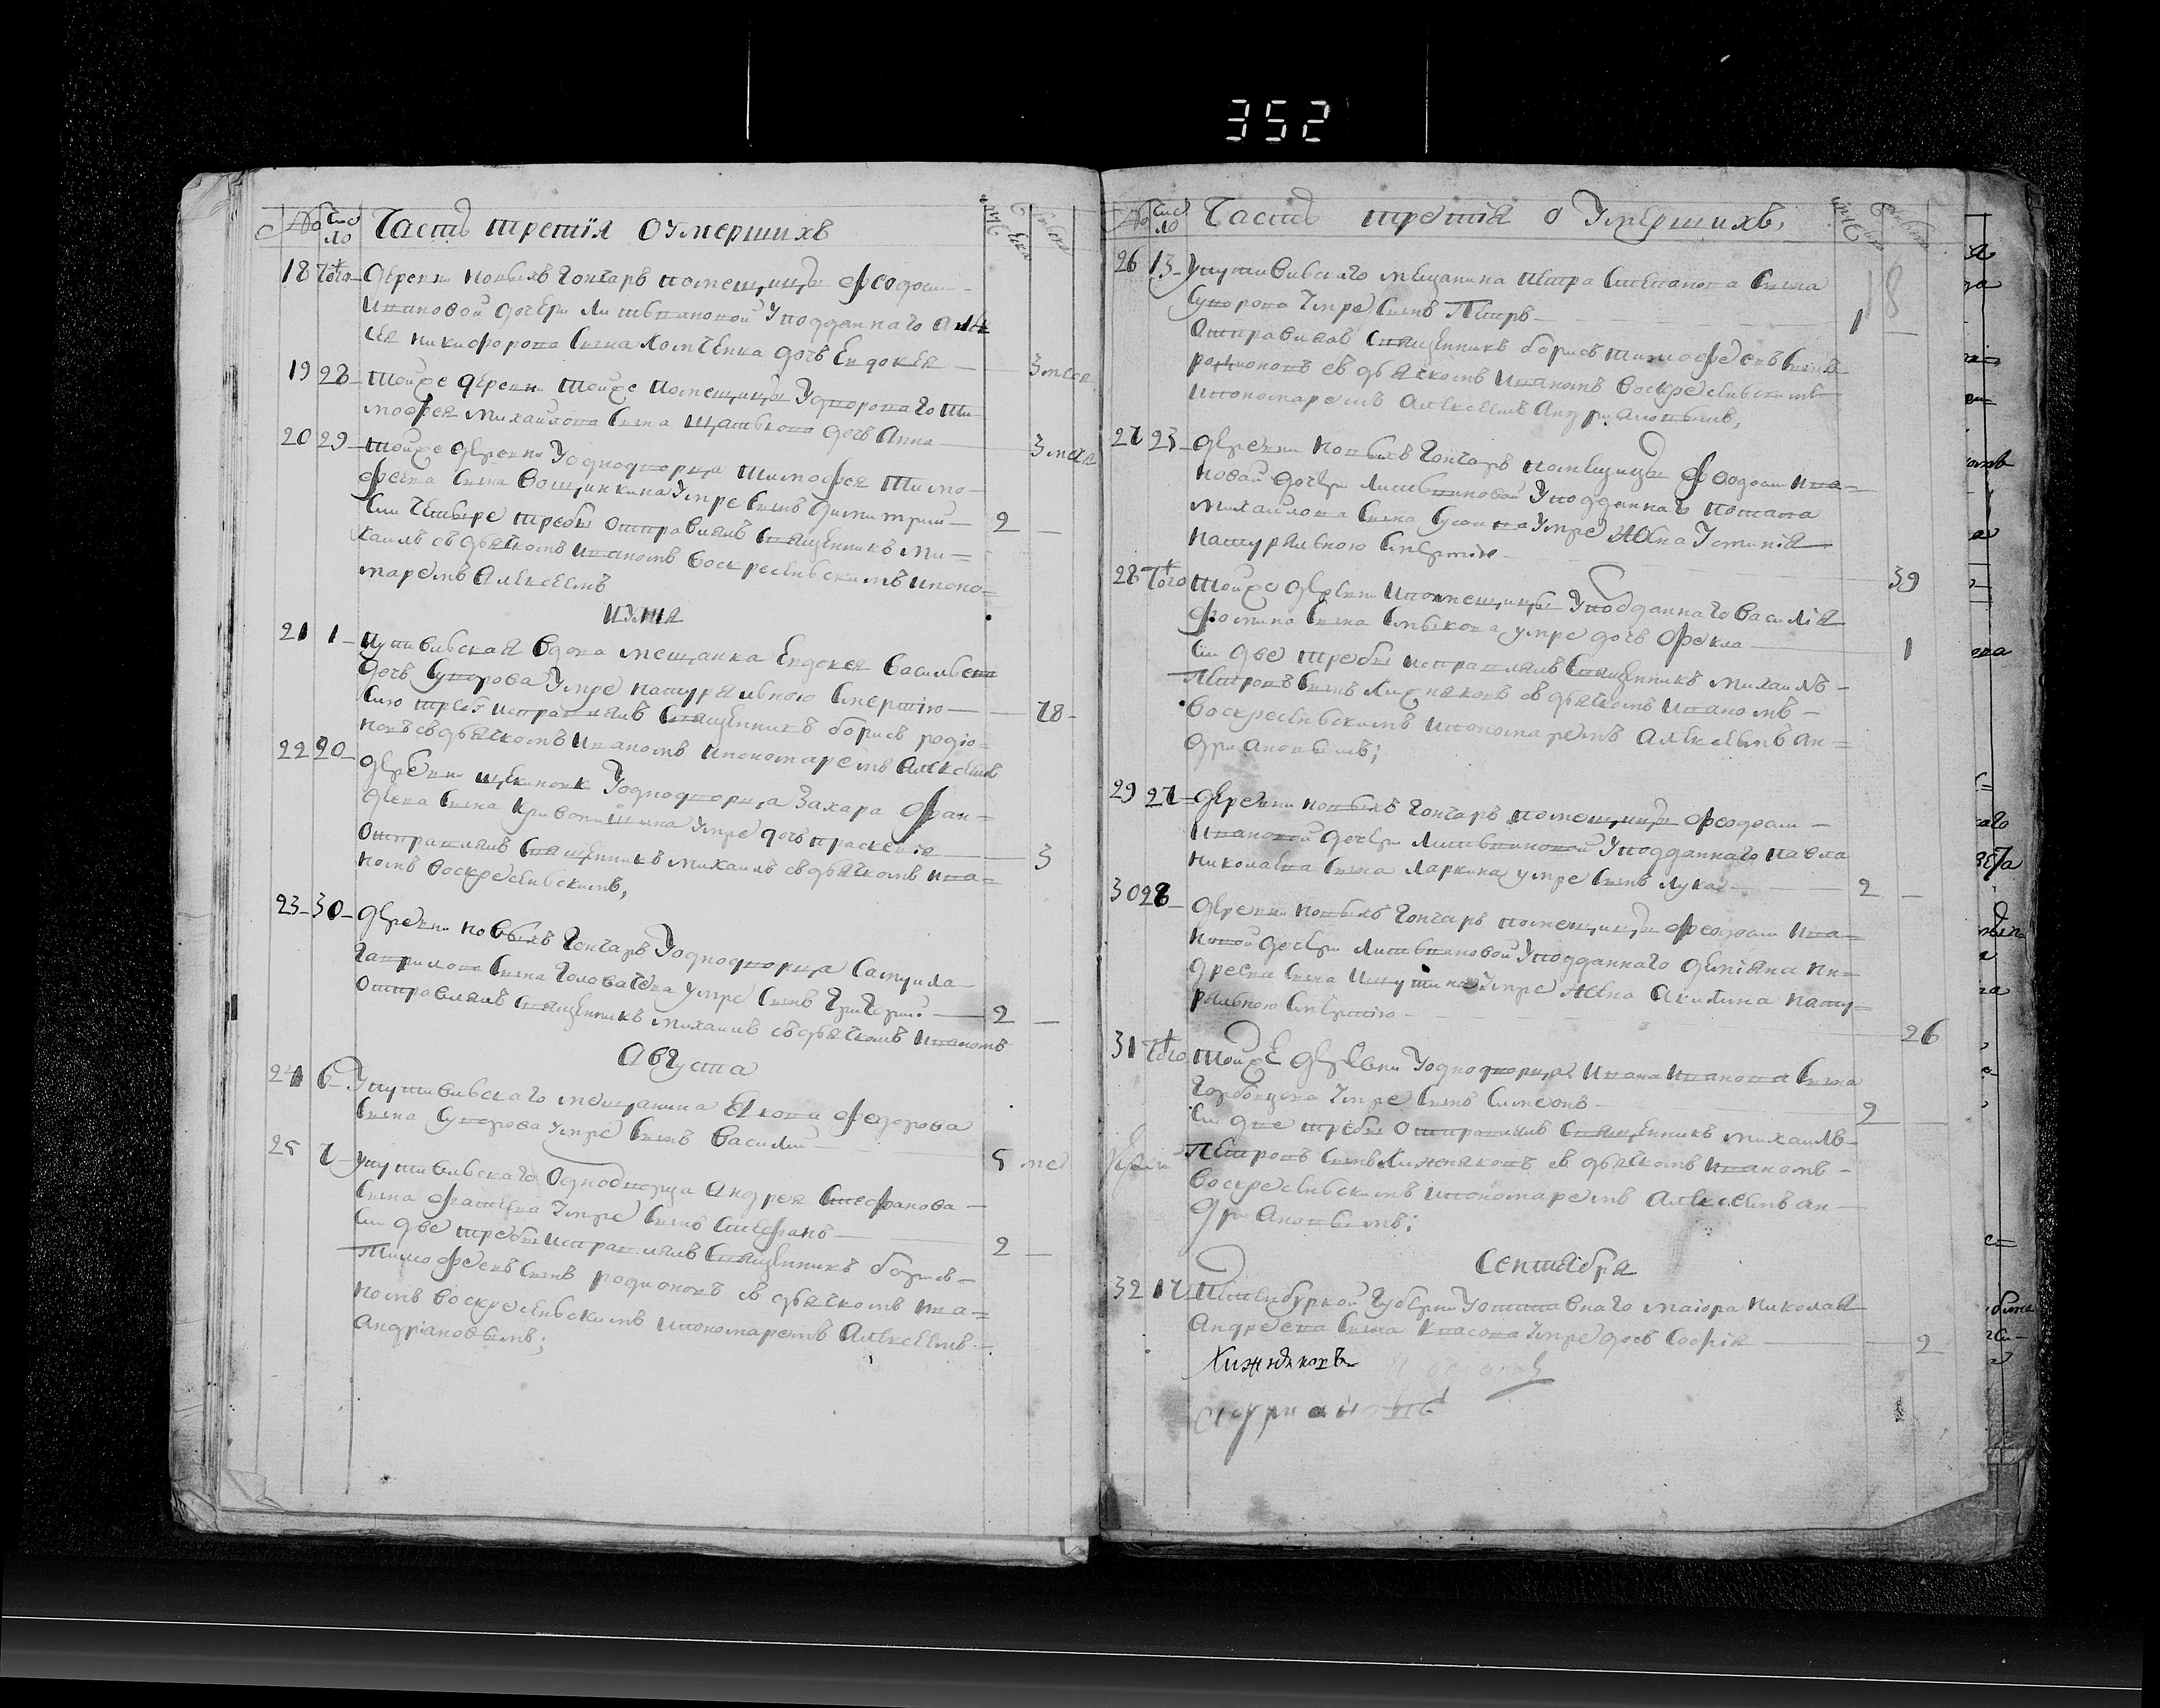 352
№ Число Часть третїя О Умершихъ
18 Того Деревни Новыхъ Гончаръ помещицы Феодоси
Ивановой дочери Литвиновой Уподданнаго Але
ѣея Никифорова сына Хомченка дочь Евдокея 3 меся
19 28 Тойже деревни тойже помещицы Уднорова го Ти
мофея Михайлова сына дочь Анна 3 меся
20 29 Тойже деревни Уоднодворца Тимофея Тимо
феева сына Вощинкина Умре сынъ Димитрий 2
Сии четыре требы отправлялъ Священникъ Ми
хаилъ съ дьячкомъ Иваномъ Воскресенскимъ ипоно
маремъ Алексеемъ
Июля
21 1 Путивльская вдова мещанка Евдокея Васильева
дочь Суворова Умре натуральною смертїю 78
Сию требу исправлялъ Священникъ Борисъ Родїо
новъ съ дьячкомъ Иваномъ ипономаремъ Алексеемъ
22 20 Деревни Уоднодворца Захара Фад
деева сына Умре дочь Праскевїя 3
Отправлялъ Священникъ Михаилъ съ дьячкомъ Ива
номъ Воскресенскимъ,
23 30 Деревни Новыхъ Гончаръ Уоднодворца Самуила
Гаврилова сына Головачева Умре сынъ Григорий 2
Отправлялъ Священникъ Михаилъ съ дьячкомъ Иваномъ
Августа
24 6 Упутивльскаго мещанина Якова Федорова
сына Суворова Умре сынъ Василий 5 ме
25 7 Упутивльскаго Однодворца Андрея Стефанова
сына Фатеева Умре сынъ Стефанъ 2
Сии две требы исправлялъ Священникъ Борисъ
Тимофеевъ сынъ Родионовъ съ дьячкомъ Ива
номъ Воскресенскимъ ипономаремъ Алексеемъ
Андрїановымъ;
№ Число Часть третїя о Умершихъ,
26 13 Упутивльскаго мещанина Петра Степанова сына
Суворова Умре сынъ Петръ 1
Отправлялъ Священникъ Борисъ Тимофеевъ сынъ
Родионовъ съ дьячкомъ Иваномъ Воскресенскимъ
ипономаремъ Алексеемъ Андриановымъ,
27 23 Деревни Новыхъ Гончаръ помещицы Феодоси Ива
новой дочери Литвиновой Уподданнаго Потапа
Михайлова сына Умре жена Устинїя
натуральною смертїю 39
28 Того Тойже деревни ипомещицы Уподданнаго Василїя
Фомина сына Смыкова умре дочь Фекла 1
Сии две требы исправлялъ Священникъ Михаилъ
Петровъ сынъ Хижняковъ съ дьячкомъ Иваномъ
Воскресенскимъ ипономаремъ Алексеемъ Ан
дриановымъ;
29 27 Деревни Новыхъ Гончаръ помещицы Феодоси
Ивановой дочери Литвиновой Уподданнаго Павла
Николаева сына Ларкина умре сынъ Лука 2
30 28 Деревни Новыхъ Гончаръ помещицы Феодоси Ива
новой дочери Литвиновой Уподданнаго Демїана Ан
дреева сына Умре жена Акилина нату
ральною смертїю 26
31 Того Тойже деревни Уоднодворца Ивана Иванова сына
Горбовцова Умре сынъ Симеонъ 2
Сии две требы Отправлялъ Священникъ Михаилъ
Петровъ сынъ Хижняковъ съ дьячкомъ Иваномъ
Воскресенскимъ ипономаремъ Алексеемъ Ан
дриановымъ;
Сентября
32 17 Губернии маїора Николая
Андреева сына Умре дочь Софїя 2
Хижняковъ